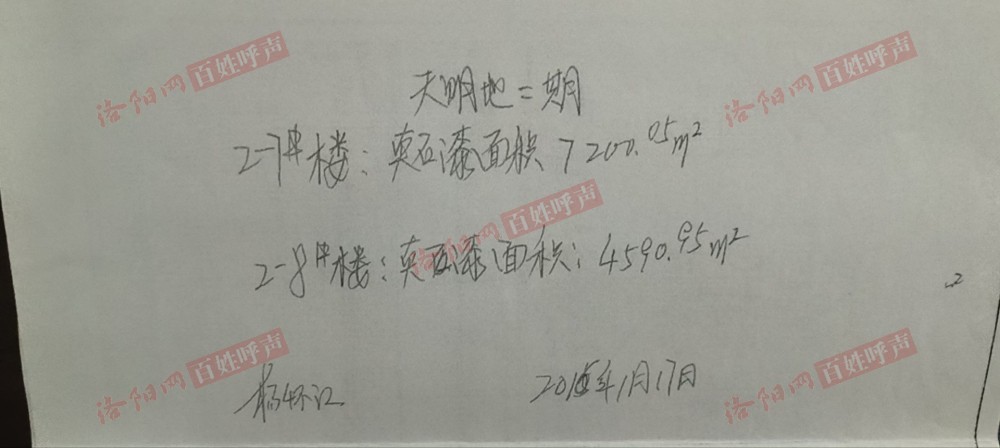 天明地二期
2-7#楼：真石漆面积7200.05m²
2-8#楼：真石漆面积：4590.95m²
m²
2015年1月17日
洛阳网 百姓呼声
洛阳网 百姓呼声
洛阳网 百姓呼声
洛阳网 百姓呼声
洛阳网 百姓呼声